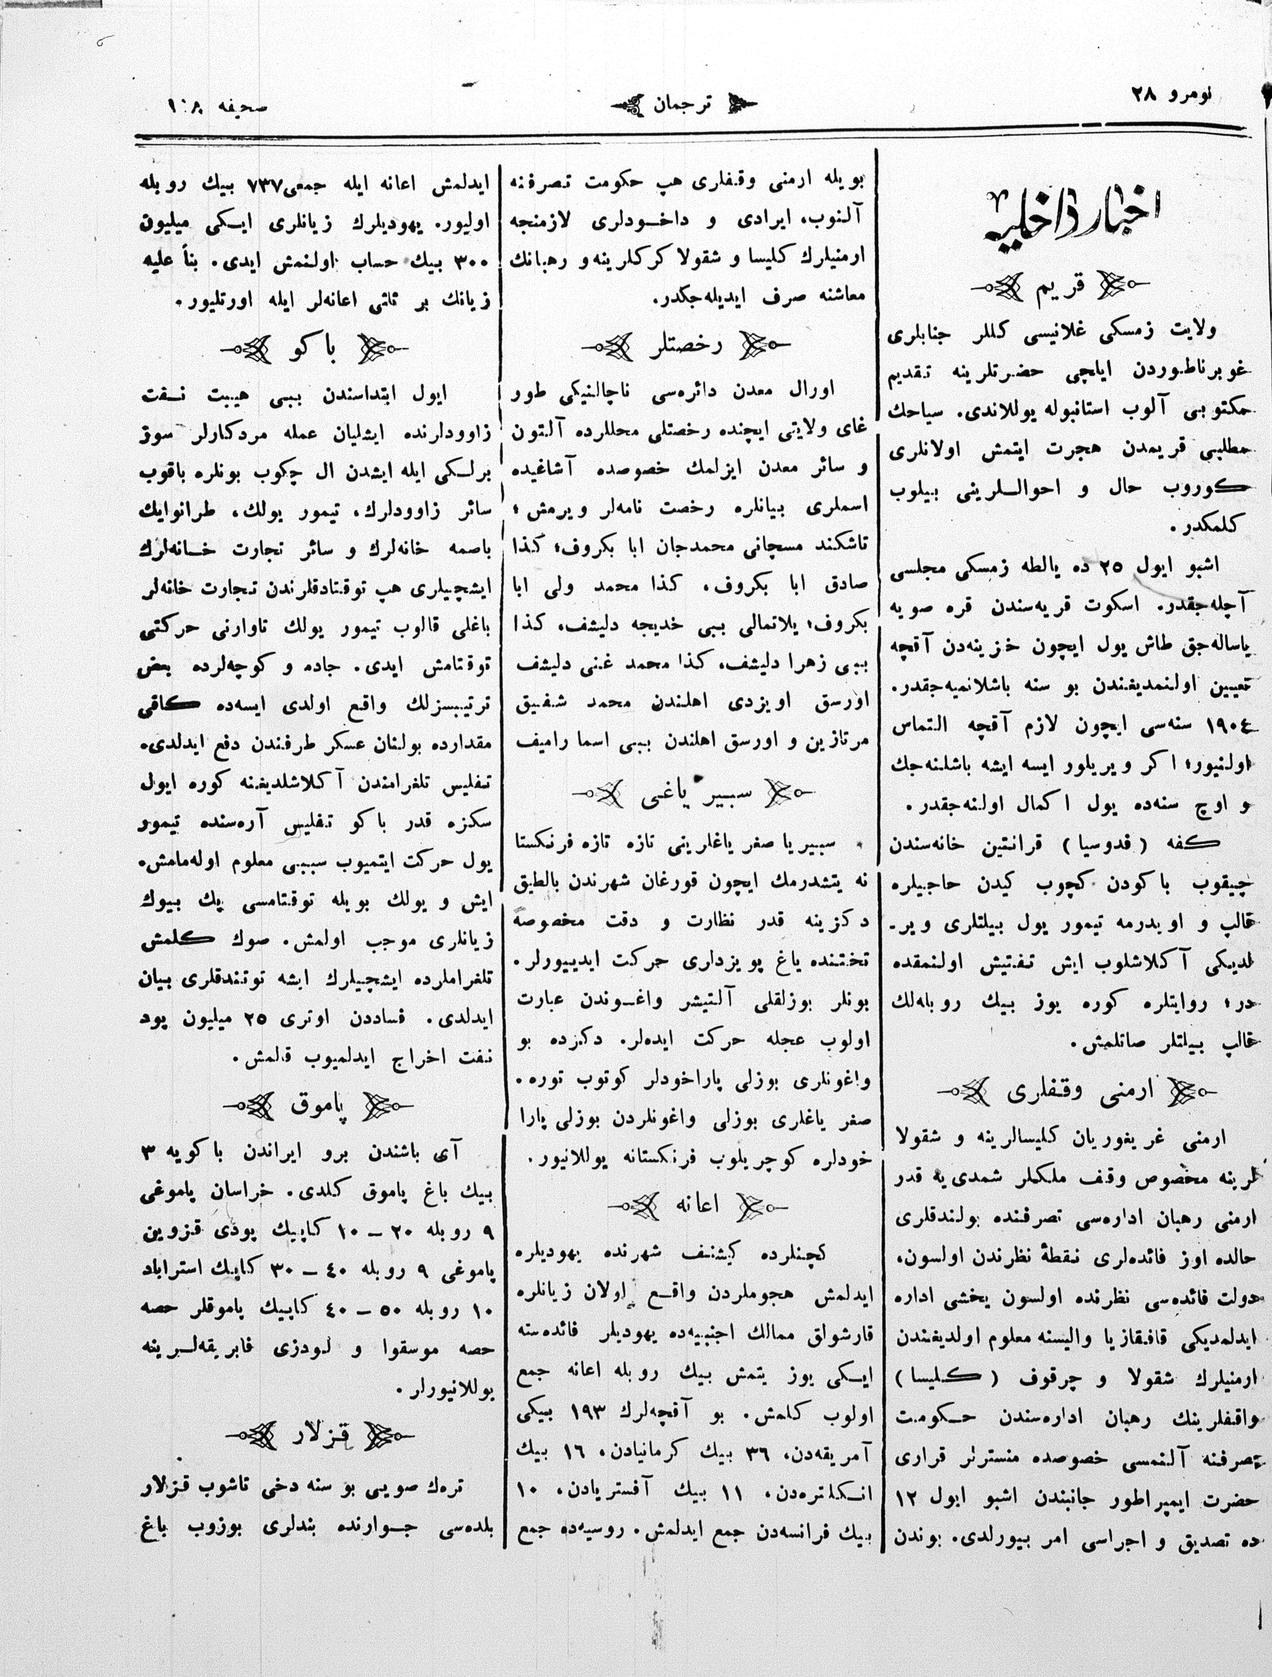 نومرو ٢٨
ترجمان
صحیفه ١٠٨
اخبار داخلیه
قریم
ولایت زمسكی غلانیسی كللر جنابلری
غوبرناطوردن ایلچی حضرتلرینه تقدیم
مكتوبی آلوب استانبوله یوللاندی. سیاحك
مطلبی قریمدن هجرت ایتمش اولانلری
كوروب حال و احواللرینی بیلوب
كلمكدر.
اشبو ایول ٢٥ ده یالطه زمسكی مجلسی
آچله‌جقدر. اسكوت قریه‌سندن قره صویه
یاساله‌جق طاش یول ایچون خزینه‌دن آقچه
تعیین اولنمدیغندن بو سنه باشلانمیه‌جقدر.
١٩٠٤ سنه‌سی ایچون لازم آقچه التماس
اولنیور؛ اكر ویریلور ایسه ایشه باشلنه‌جك
و اوچ سنه‌ده یول اكمال اولنه‌جقدر.
كفه (فدوسیا) قرانتین خانه‌سندن
چیقوب باكودن كچوب كیدن حاجیلره
قالپ و اویدرمه تیمور یول بیلتلری ویر-
لدیكی آكلاشلوب ایش تفتیش اولنمقده
در؛ روایتلره كوره یوز بیك روبله‌لك
قالپ بیلتلر صاتلمش.
ارمنی وقفلری
ارمنی غریغوریان كلیسالرینه و شقولا
لرینه مخصوص وقف ملكلر شمدی‌یه قدر
ارمنی رهبان اداره‌سی تصرفنده بولندقلری
حالده اوز فائده‌لری نقطۀ نظرندن اولسون،
دولت فائده‌سی نظرنده اولسون یخشی اداره
ایدلمدیكی قافقازیا والیسنه معلوم اولدیغندن
ارمنیلرك شقولا و چرقوف (كلیسا)
واقفلرینك رهبان اداره‌سندن حكومت
تصرفنه آلنمسی خصوصده منسترلر قراری
حضرت ایمپراطور جانبندن اشبو ایول ١٢
ده تصدیق و اجراسی امر بیورلدی. بوندن
بویله ارمنی وقفلری هپ حكومت تصرفنه
آلنوب، ایرادی و داخودلری لازمنجه
ارمنیلرك كلیسا و شقولا كركلرینه و رهبانك
معاشنه صرف ایدیله‌جكدر.
رخصتلر
اورال معدن دائره‌سی ناچالنیكی طور
غای ولایتی ایچنده رخصتلی محللرده آلتون
و سائر معدن ایزلمك خصوصده آشاغیده
اسملری بیانلره رخصت نامه‌لر ویرمش؛
تاشكند مسچانی محمدجان ابا بكروف؛ كذا
صادق ابا بكروف. كذا محمد ولی ابا
بكروف؛ یلاتمالی بیبی خدیجه دلیشف، كذا
بیبی زهرا دلیشف، كذا محمد غنی دلیشف
اورسق اویزدی اهلندن محمد شفیق
مرتازین و اورسق اهلندن بیبی اسما رامیف
سبیر یاغی
سبیریا صغر یاغلرینی تازه تازه فرنكستا
نه یتشدرمك ایچون قورغان شهرندن بالطیق
دكزینه قدر نظارت و دقت مخصوصه
تختنده یاغ پویزداری حركت ایدییورلر.
بونلر بوزلقلی آلتیشر واغوندن عبارت
اولوب عجله حركت ایده‌لر. دكزده بو
واغونلری بوزلی پاراخودلر كوتوب توره.
صغر یاغلری بوزلی واغونلردن بوزلی پارا
خودلره كوچریلوب فرنكستانه یوللانیور.
اعانه
كچنلرده كیشنف شهرنده یهودیلره
ایدلمش هجوملردن واقع اولان زیانلره
قارشولق ممالك اجنبیه‌ده یهودیلر فائده‌سنه
ایكی یوز یتمش بیك روبله اعانه جمع
اولوب كلمش. بو آقچه‌لرك ١٩٣ بیكی
آمریقه‌دن، ٣٦ بیك كرمانیادن، ١٦ بیك
انكلتره‌دن، ١١ بیك آفستریادن، ١٠
بیك فرانسه‌دن جمع ایدلمش. روسیه‌ده جمع
ایدلمش اعانه ایله جمعی ٧٣٧ بیك روبله
اولیور. یهودیلرك زیانلری ایكی میلیون
٣٠٠ بیك حساب اولنمش ایدی. بنأ علیه
زیانك بر ثلثی اعانه‌لر ایله اورتلیور.
باكو
ایول ابتداسندن ببی هیبت نفت
زاوودلرنده ایشلیان عمله مردكارلر سوز
برلكی ایله ایشدن ال چكوب بونلره باقوب
سائر زاوودلرك، تیمور یولك، طرانوایك
باصمه خانه‌لرك و سائر تجارت خانه‌لرك
ایشچیلری هپ توقتادقلرندن تجارت خانه‌لر
باغلی قالوب تیمور یولك تاوارنی حركتی
توقتامش ایدی. جاده و كوچه‌لرده بعض
ترتیبسزلك واقع اولدی ایسه‌ده كافی
مقدارده بولنان عسكر طرفندن دفع ایدلدی.
تفلیس تلغرامندن آكلاشلدیغنه كوره ایول
سكزه قدر باكو تفلیس آره‌سنده تیمور
یول حركت ایتمیوب سببی معلوم اوله‌مامش.
ایش و یولك بویله توقتامسی پك بیوك
زیانلری موجب اولمش. صوك كلمش
تلغراملرده ایشچیلرك ایشه توتندقلری بیان
ایدلدی. فساددن اوتری ٢٥ میلیون پود
نفت اخراج ایدلمیوب قالمش.
پاموق
آی باشندن برو ایراندن باكویه ٣
بیك باغ پاموق كلدی. خراسان پاموغی
٩ روبله ٢٠ – ١٠ كاپیك پودی قزوین
پاموغی ٩ روبله ٤٠ – ٣٠ كاپیك استراباد
١٠ روبله ٥٠ – ٤٠ كاپیك پاموقلر حصه
حصه موسقوا و لودزی فابریقه‌لرینه
یوللانیورلر.
قزلار
ترك صویی بو سنه دخی تاشوب قزلار
بلده‌سی جوارنده بندلری بوزوب باغ